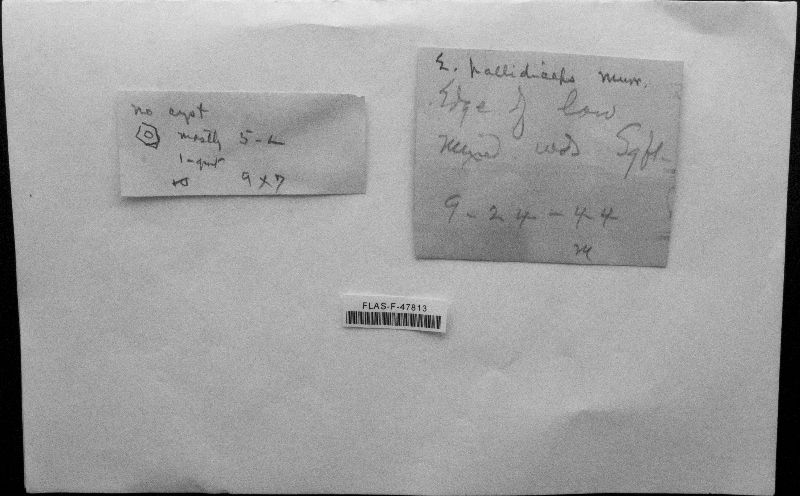 no cyst
mostly 5-L
1-gut
to 9 x 7
E. pallidiceps Murr.
Edge of low
mixed wds Sgfl-
9-24-44
M
FLAS-F-47813